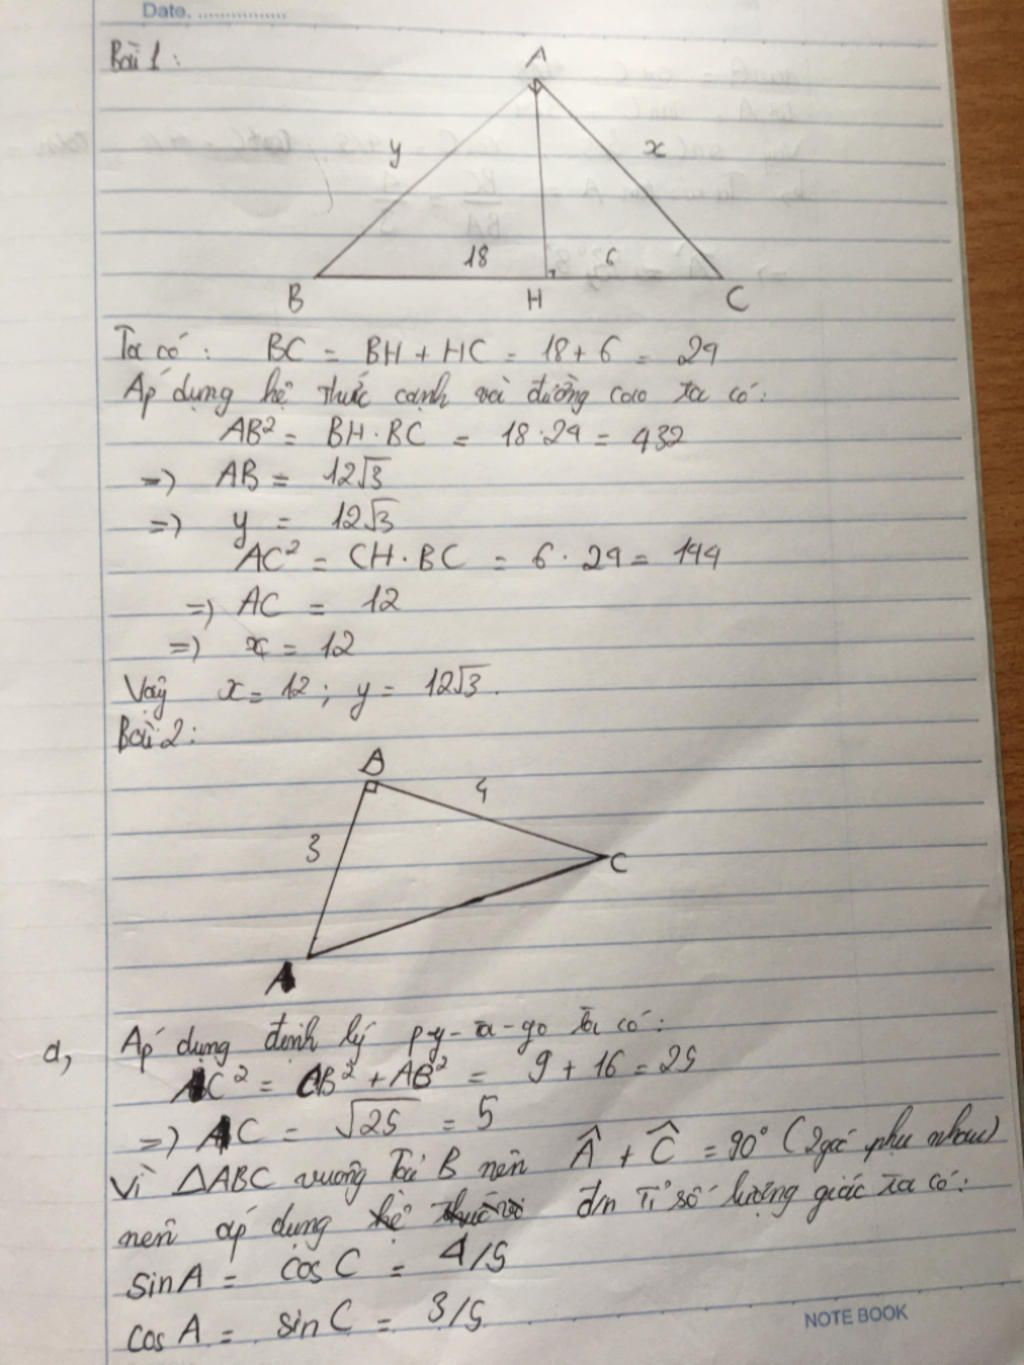 Date. ................
Bài 1:
A
y
x
18
6
B
H
C
Ta có: BC = BH + HC = 18 + 6 = 24
Áp dụng hệ thức cạnh và đường cao ta có:
AB² = BH . BC = 18 . 24 = 432
=> AB = 12√3
=> y = 12√3
AC² = CH . BC = 6 . 24 = 144
=> AC = 12
=> x = 12
Vậy x = 12 ; y = 12√3.
Bài 2:
B
4
3
C
A
a, Áp dụng định lý py-ta-go ta có:
AC² = CB² + AB² = 9 + 16 = 25
=> AC = √25 = 5
Vì ΔABC vuông tại B nên Â + Ĉ = 90° (2 góc phụ nhau)
nên áp dụng đ/n tỉ số lượng giác ta có:
sin A = cos C = 4/5
cos A = sin C = 3/5
NOTE BOOK